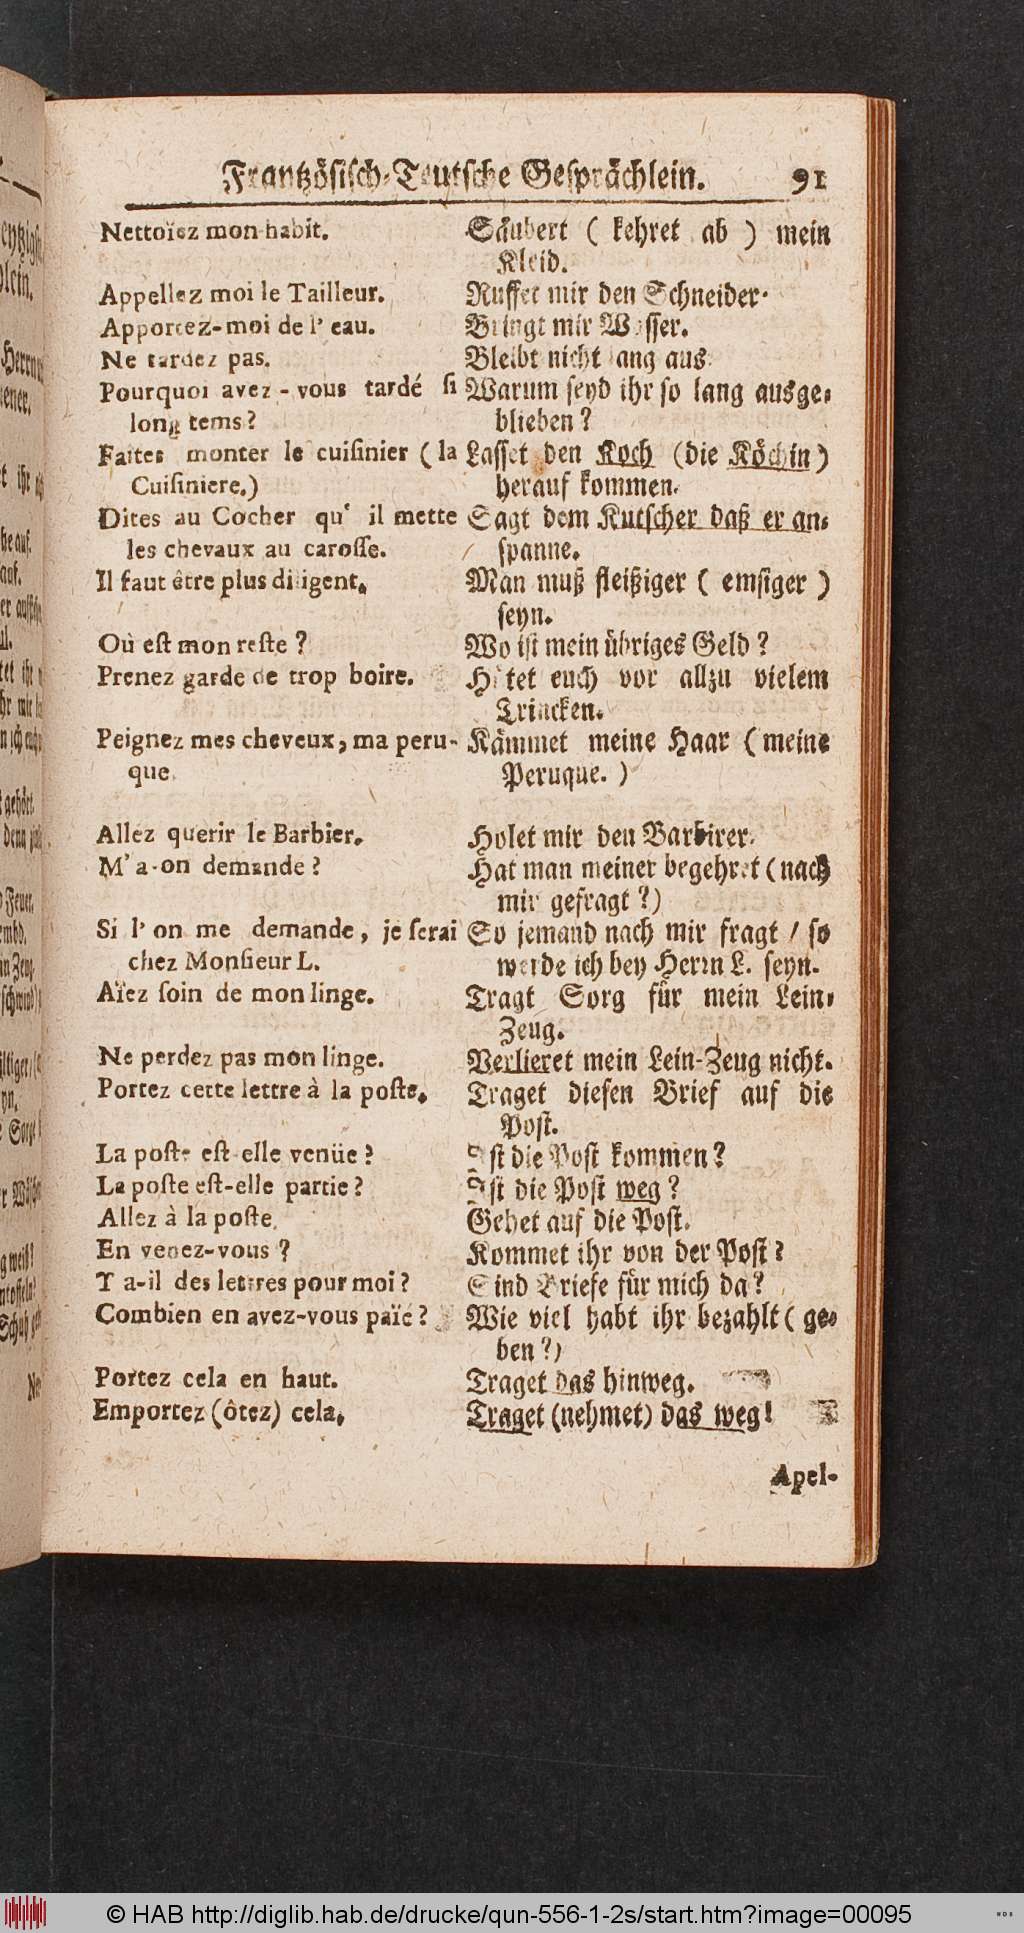 Frantzösisch-Teutsche Gesprächlein. 91
Nettoïez mon habit.
Appellez moi le Tailleur.
Apportez-moi de l' eau.
Ne tardez pas.
Pourquoi avez-vous tardé si
long tems?
Faites monter le cuisinier (la
Cuisiniere.)
Dites au Cocher qu' il mette
les chevaux au carosse.
Il faut être plus diligent.
Où est mon reste?
Prenez garde de trop boire.
Peignez mes cheveux, ma peru-
que.
Allez querir le Barbier.
M' a-on demande?
Si l' on me demande, je serai
chez Monsieur L.
Aïez soin de mon linge.
Ne perdez pas mon linge.
Portez cette lettre à la poste.
La poste est-elle venüe?
La poste est-elle partie?
Allez à la poste.
En venez-vous?
T a-il des lettres pour moi?
Combien en avez-vous païé?
Portez cela en haut.
Emportez (ôtez) cela.
Säubert (kehret ab) mein
Kleid.
Ruffet mir den Schneider.
Bringt mir Wasser.
Bleibt nicht lang aus.
Warum seyd ihr so lang ausge-
blieben?
Lasset den Koch (die Köchin)
herauf kommen.
Sagt dem Kutscher daß er an-
spanne.
Man muß fleißiger (emsiger)
seyn.
Wo ist mein übriges Geld?
Hütet euch vor allzu vielem
Trincken.
Kämmet meine Haar (meine
Peruque.)
Holet mir den Barbirer.
Hat man meiner begehret (nach
mir gefragt?)
So jemand nach mir fragt / so
werde ich bey Herrn L. seyn.
Tragt Sorg für mein Lein-
Zeug.
Verlieret mein Lein-Zeug nicht.
Traget diesen Brief auf die
Post.
Ist die Post kommen?
Ist die Post weg?
Gehet auf die Post.
Kommet ihr von der Post?
Sind Briefe für mich da?
Wie viel habt ihr bezahlt (ge-
ben?)
Traget das hinweg.
Traget (nehmet) das weg!
Apel-
© HAB http://diglib.hab.de/drucke/qun-556-1-2s/start.htm?image=00095